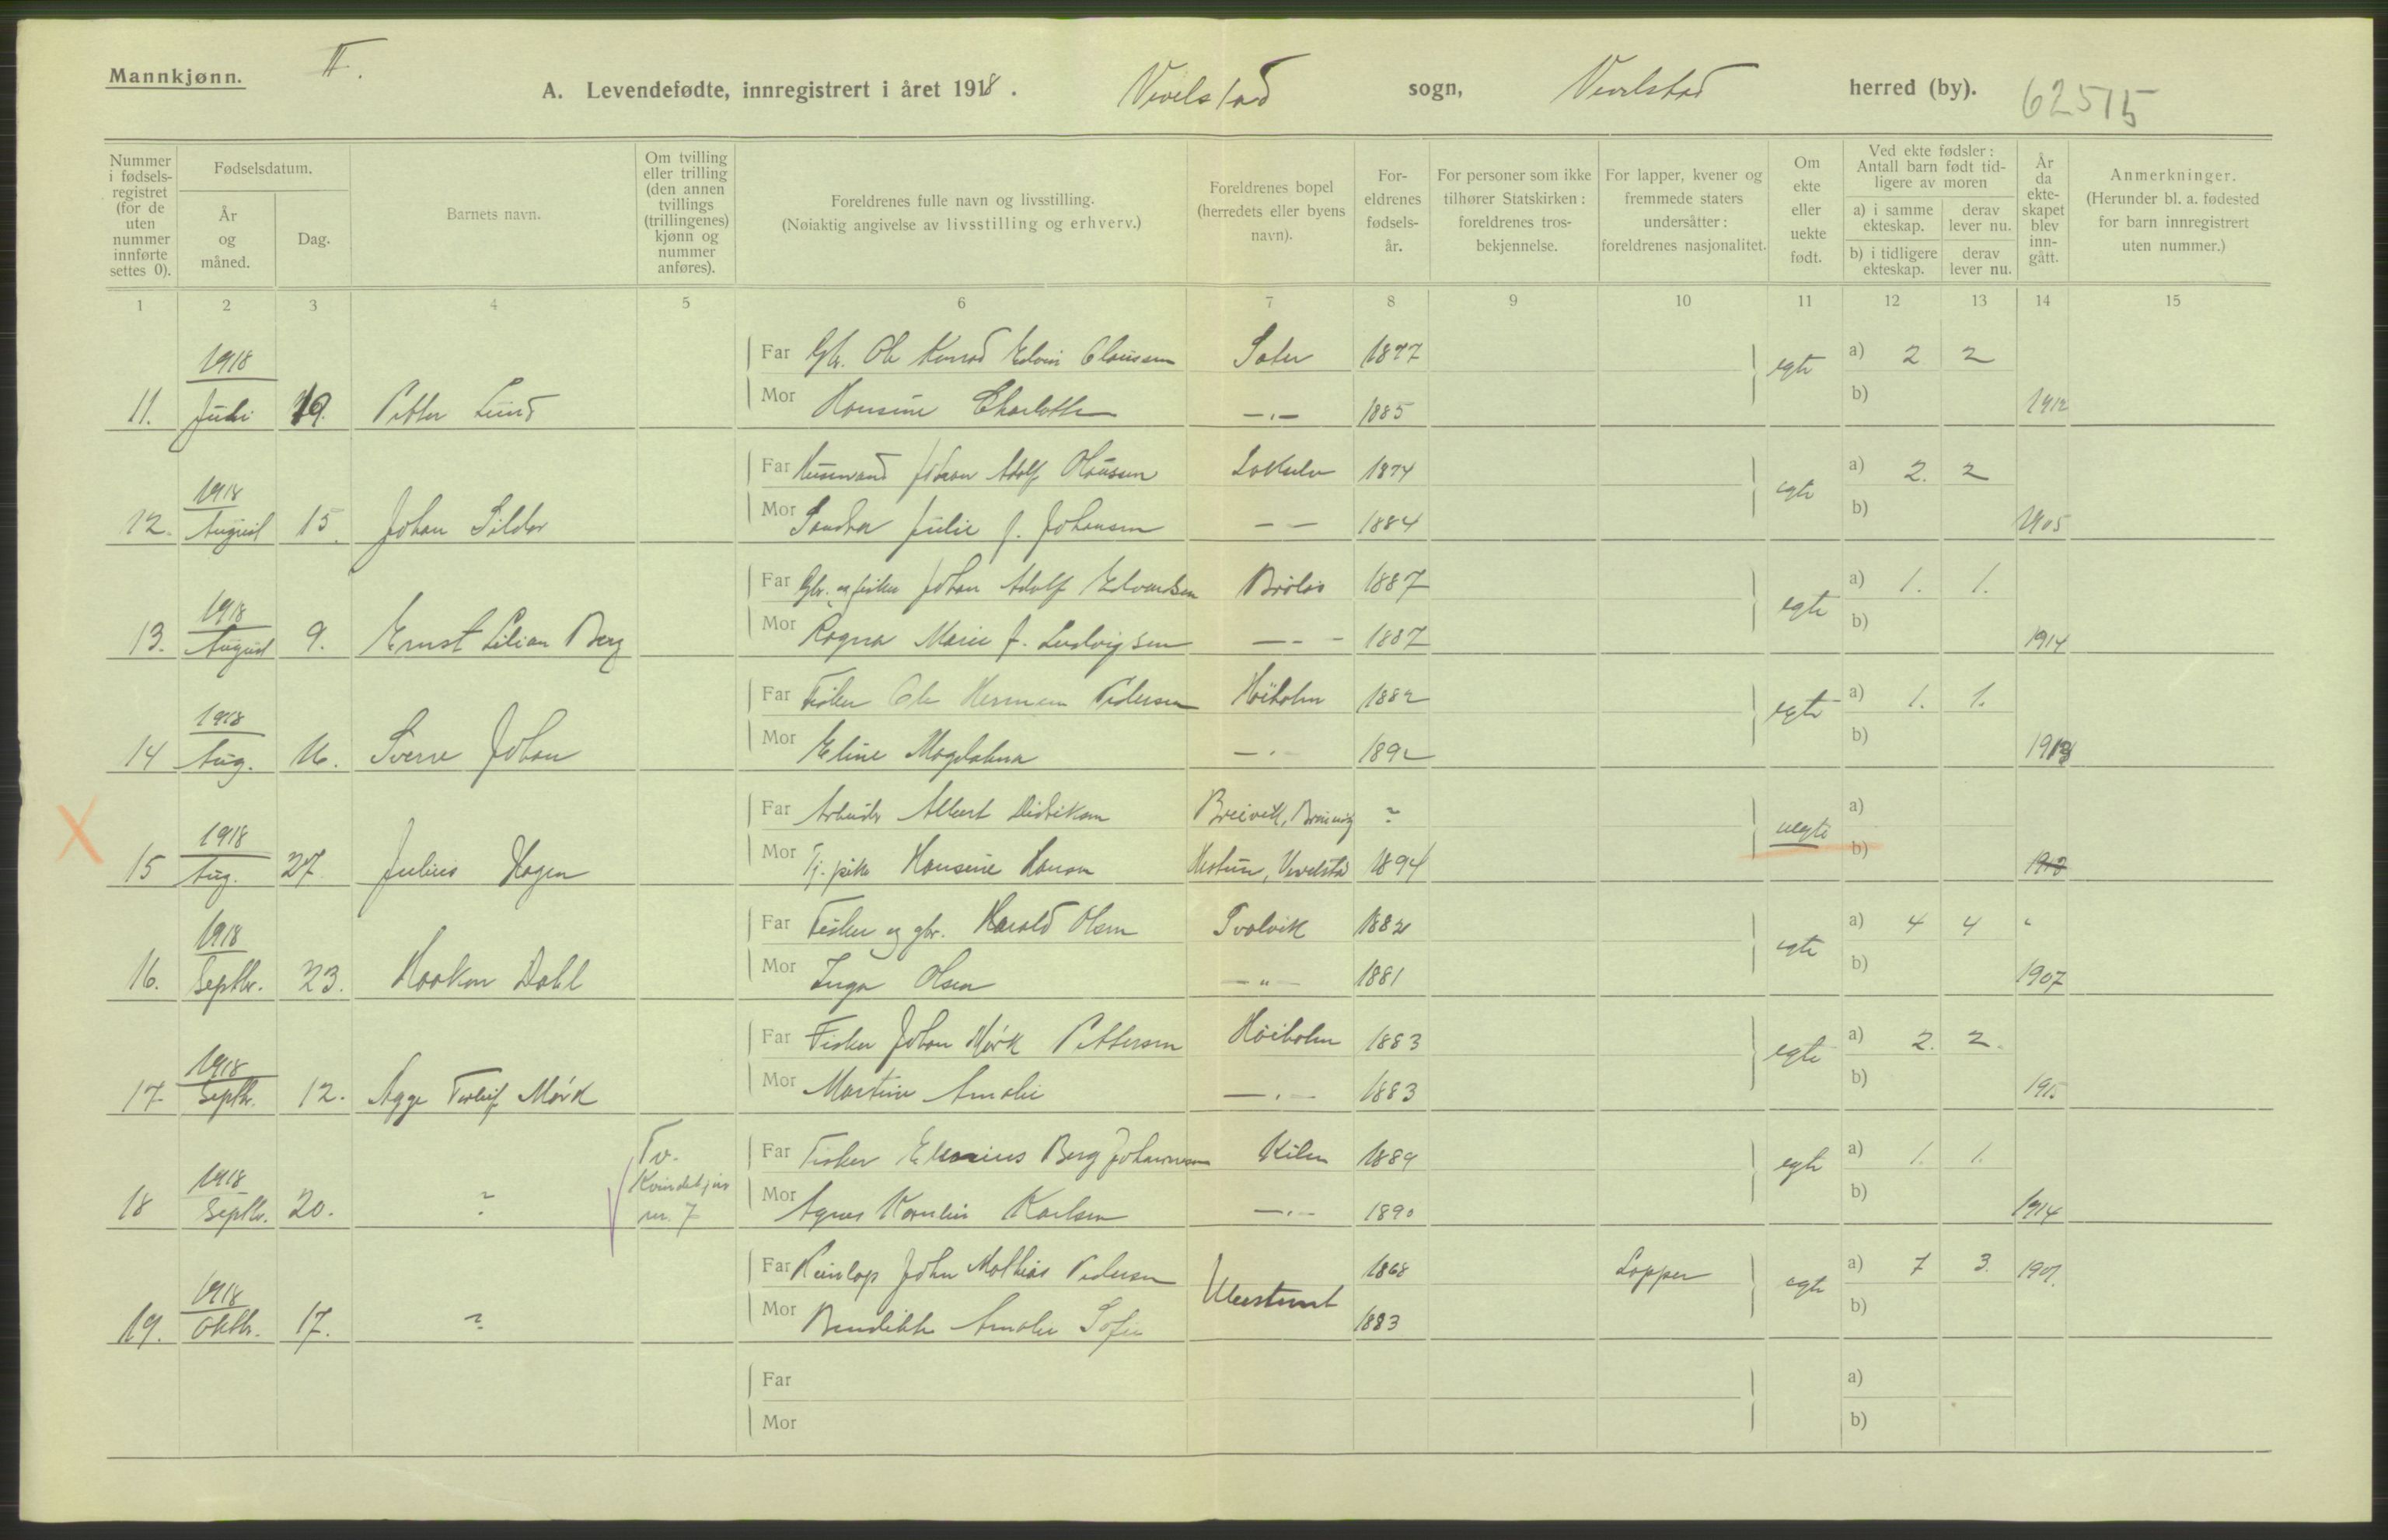 Mannkjønn. II.
A. Levendefødte, innregistrert i året 1918. Vevelstad sogn, Vevelstad herred (by). 62515
Nummer i fødsels-registret (for de uten nummer innførte settes 0).
Fødselsdatum.
År og måned.
Dag.
Barnets navn.
Om tvilling eller trilling (den annen tvillings (trillingenes) kjønn og nummer anføres).
Foreldrenes fulle navn og livsstilling.
(Nøiaktig angivelse av livsstilling og erhverv.)
Foreldrenes bopel (herredets eller byens navn).
For-eldrenes fødsels-år.
For personer som ikke tilhører Statskirken: foreldrenes tros-bekjennelse.
For lapper, kvener og fremmede staters undersåtter: foreldrenes nasjonalitet.
Om ekte eller uekte født.
Ved ekte fødsler: Antall barn født tid-ligere av moren
a) i samme ekteskap. derav lever nu.
b) i tidligere ekteskap. derav lever nu.
År da ekte-skapet blev inn-gått.
Anmerkninger.
(Herunder bl. a. fødested for barn innregistrert uten nummer.)
1 2 3 4 5 6 7 8 9 10 11 12 13 14 15
1918 Far Gbr. Ole Konrad Edvin Claussen 1877 egte a) 2 2
11. Juli 19. Petter Lund Mor Hansine Charlotte —„— 1885 b) 1912
1918 Far Husmand Johan Adolf Olaussen 1874 egte a) 2. 2
12. August 15. Johan Mor Sandra Julie J. Johansen — — 1884 b) 1905
1918 Far Gbr. og fisker Johan Adolf Edvardsen 1887 egte a) 1. 1.
13. August 9. Ernst Lilian Berg Mor Ragna Marie f. Ludvigsen — - - 1887 b) 1914
1918 Far Fisker Ole Herman Pedersen Høiholm 1882 egte a) 1. 1.
14 Aug. 16. Sverre Johan Mor Eline Magdalena —„— 1892 b) 1913
X 1918 Far Arbeider Albert Didriksen Breivik, ? uegte a)
15 Aug. 27. Julius Hagen Mor Tj. pike Hansine Hansen Vevelstad 1894 b)
1918 Far Fisker og gbr. Harald Olsen 1882 egte a) 4 4
16. Septbr. 23. Haakon Dahl Mor Inga Olsen —„— 1881 b) 1907
1918 Far Fisker Johan Mørk Pettersen Høiholm 1883 egte a) 2. 2.
17 Septbr. 12. Mørk Mor Martine Amalie —„— 1883 b) 1915
1918 Tv. Kvindekjøn nr. 7 Far Fisker Berg Johannessen Kilen 1889 egte a) 1. 1.
18 Septbr. 20. ? Mor Agnes Karlsen —„— 1890 b) 1914
1918 Far Reinlap John Mathias Pedersen 1868 Lapper egte a) 7 3. 1907.
19. Oktbr. 17. ? Mor Bendikte Amalie Sofie 1883 b)
Far a)
Mor b)